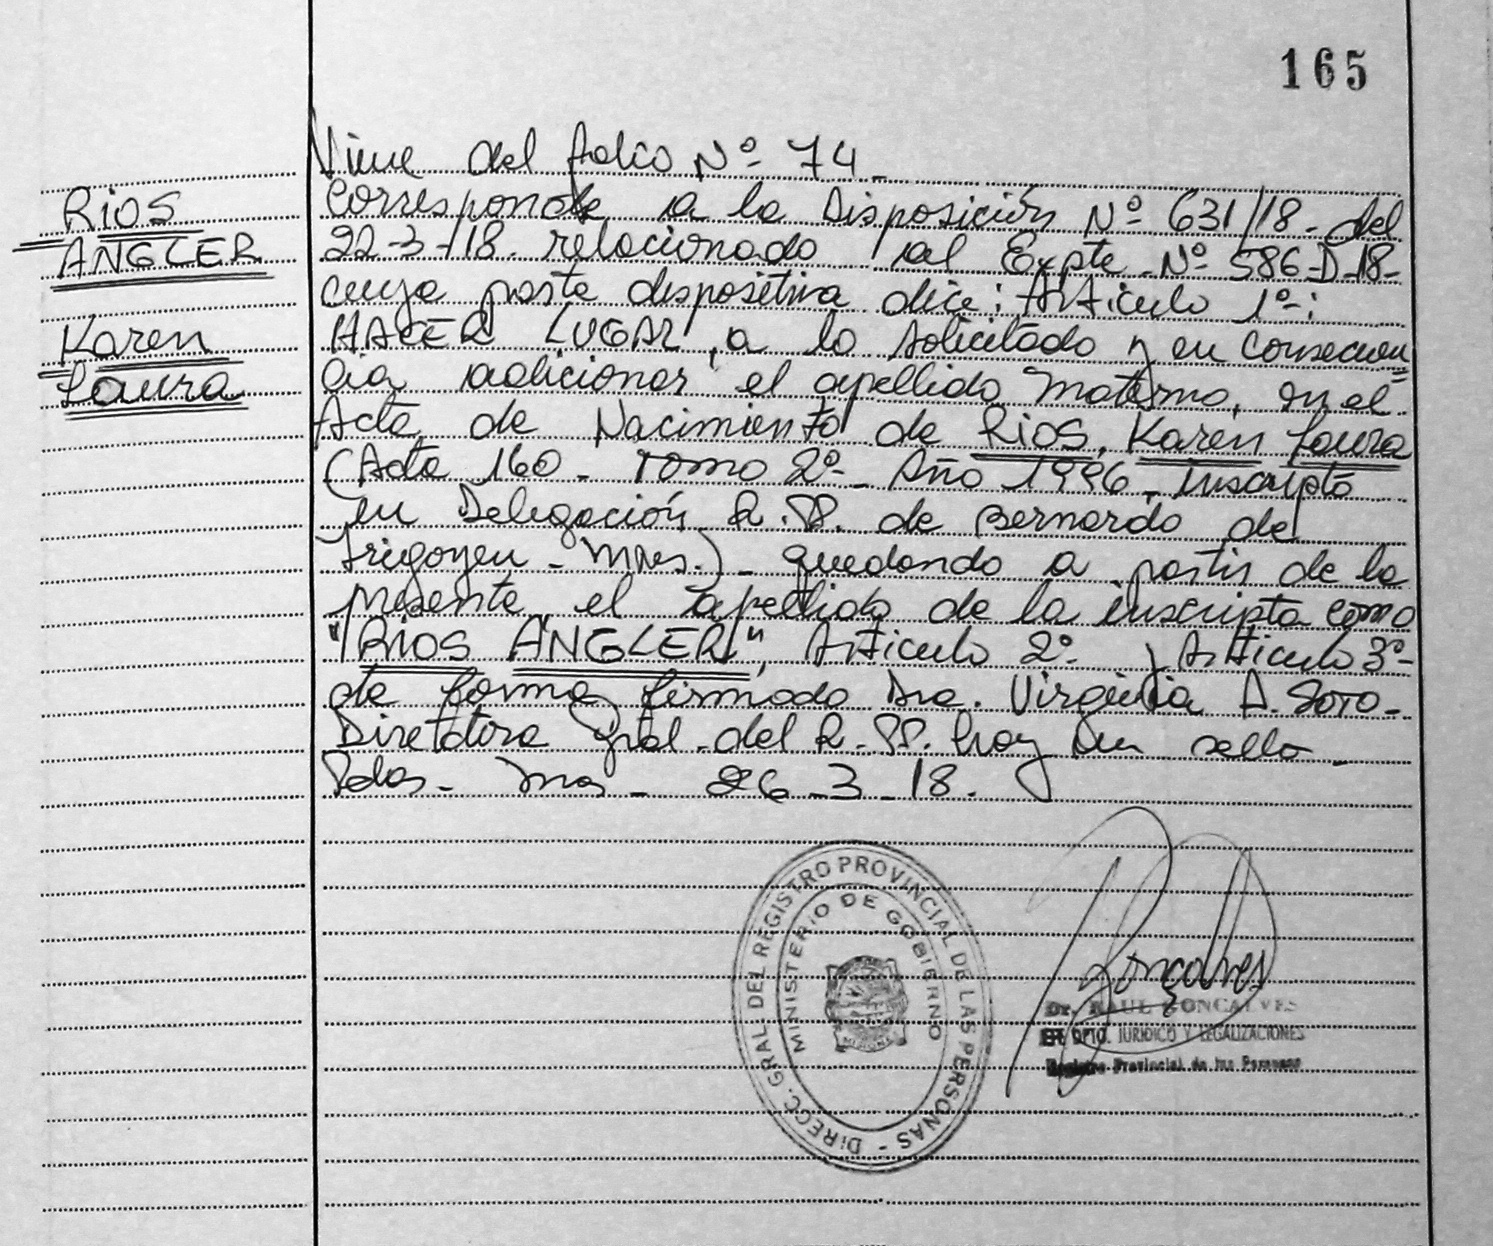 165
Viene del folio Nº 74
RIOS
ANGLER
Karen
Laura
Corresponde a la Disposición Nº 631/18. del
22-3-18. relacionado al Expte. Nº 586-D-18-
cuya parte dispositiva dice: Artículo 1º:
HACER LUGAR, a lo solicitado y en consecuen
cia adicionar el apellido materno, en el
Acta de Nacimiento de RIOS, Karen Laura
(Acta 160 - Tomo 2º - Año 1996 - inscripta
en Delegación R.PP. de Bernardo de
Irigoyen - Mnes.) - quedando a partir de la
presente, el apellido de la inscripta como
"RIOS ANGLER", Artículo 2º y Artículo 3º-
de forma firmado Dra. Virginia A. Soto-
Directora Gral. del R.PP. hay un sello -
Pdas - Mns - 26-3-18.
DIRECC. GRAL. DEL REGISTRO PROVINCIAL DE LAS PERSONAS -
MINISTERIO DE GOBIERNO
MISIONES
Gonçalves
Dr. RAUL GONCALVES
DPTO. JURIDICO Y LEGALIZACIONES
Registro Provincial de las Personas